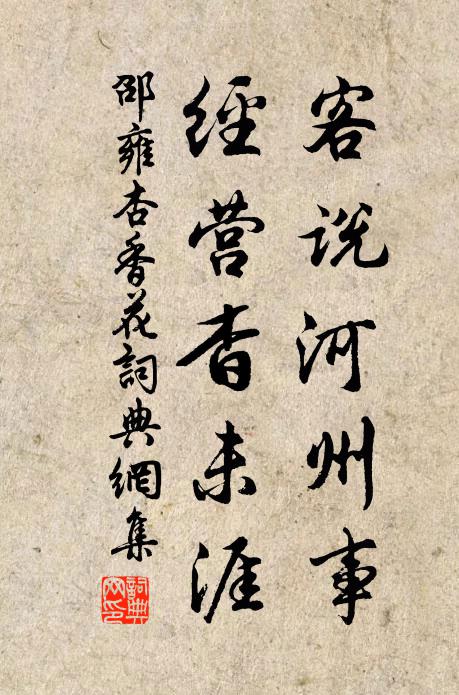 客説河州事
經营杳未涯
邵雍杏香花詞典網集
詞典
网印